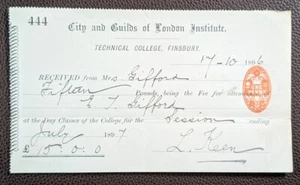 444
City and Guilds of London Institute.
TECHNICAL COLLEGE, FINSBURY.
17-10 1896
RECEIVED from Mrs Gifford
Fifteen Pounds, being the Fee for
E. T. Gifford
at the Day Classes of the College for the Session ending
July 1897
£ 15.0.0 L. Keen